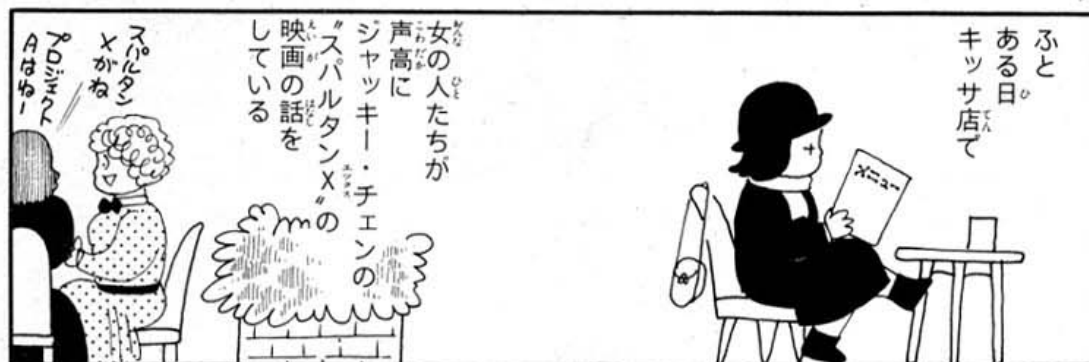 ふと
ある日
キッサ店で
メニュー
女の人たちが
声高に
ジャッキー・チェンの
“スパルタンX”の
映画の話を
している
スパルタン
Xがね
プロジェクト
Aはねー